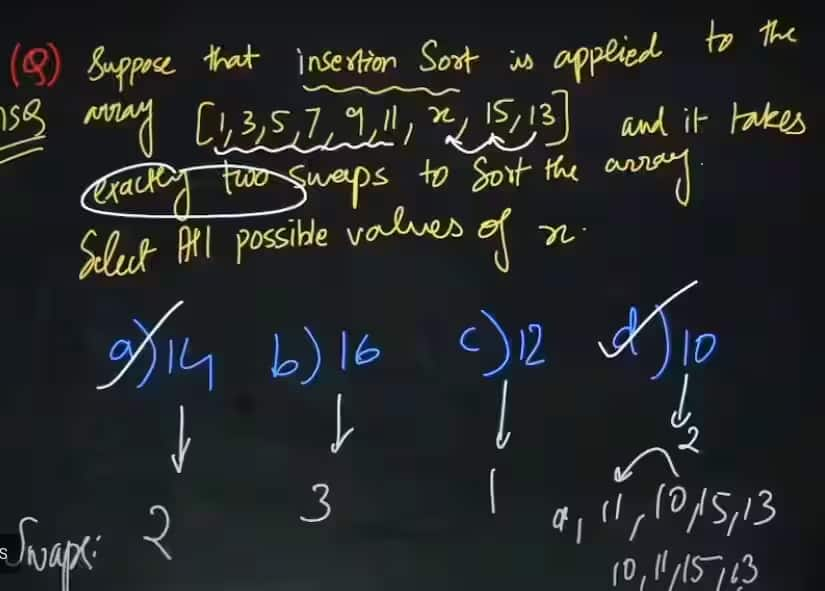 (Q) Suppose that insertion Sort is applied to the
MSQ array [1,3,5,7,9,11, x, 15,13] and it takes
exactly two swaps to Sort the array.
Select All possible values of x.
a) 14 b) 16 c) 12 d) 10
2
Swaps: 2 3 1
9, 11, 10, 15, 13
10, 11, 15, 13